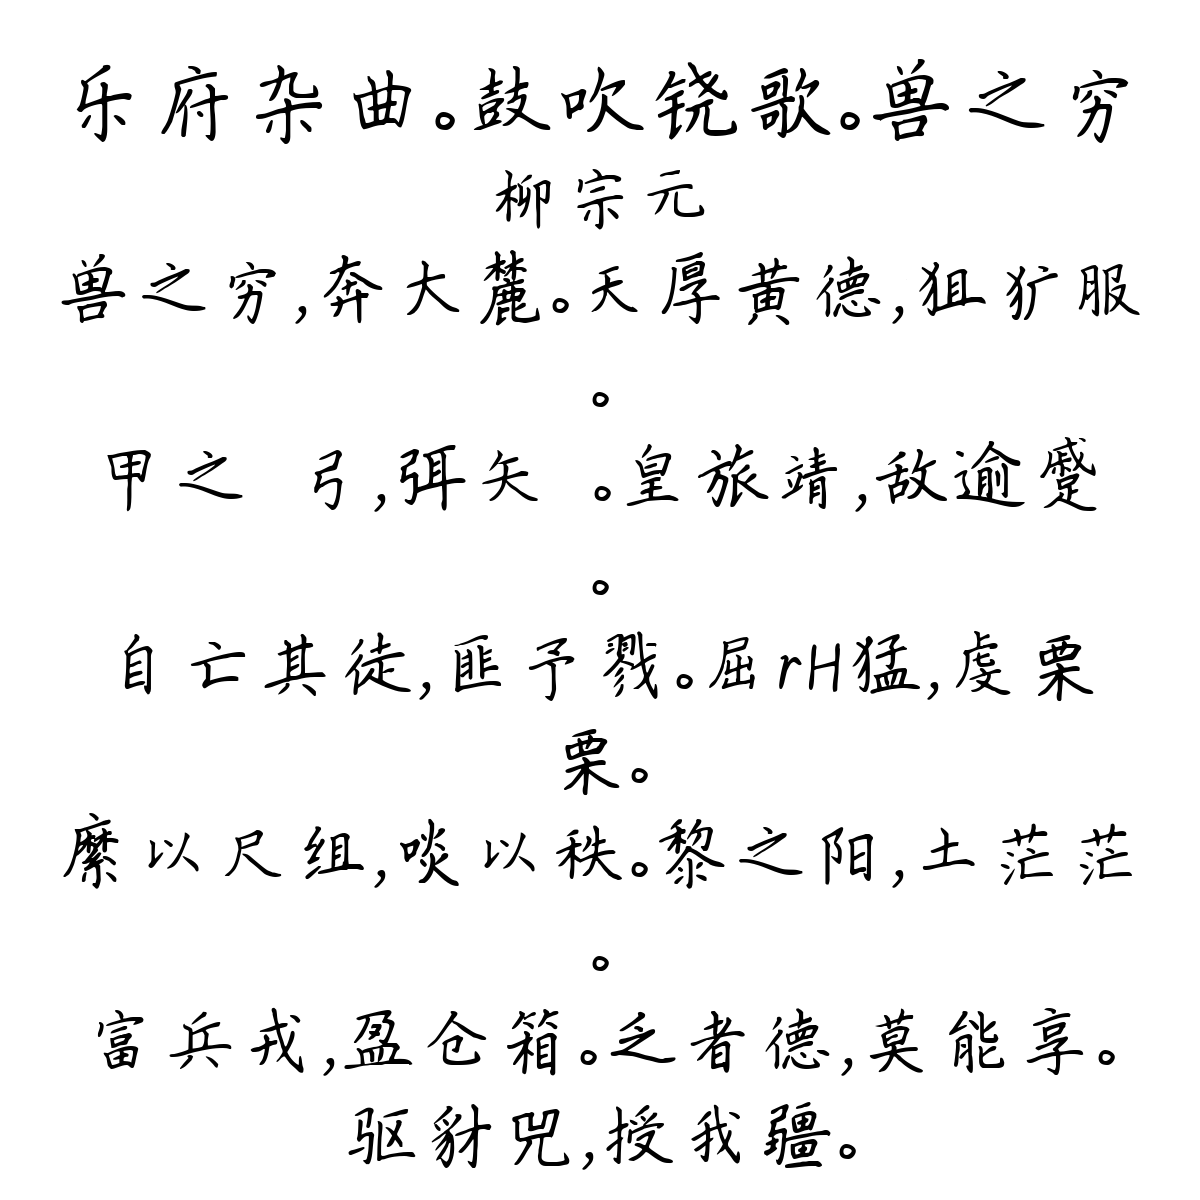 乐府杂曲。鼓吹铙歌。兽之穷
柳宗元
兽之穷,奔大麓。天厚黄德,狙犷服
。
甲之 弓,弭矢 。皇旅靖,敌逾蹙
。
自亡其徒,匪予戮。屈rH猛,虔栗
栗。
縻以尺组,啖以秩。黎之阳,土茫茫
。
富兵戎,盈仓箱。乏者德,莫能享。
驱豺兕,授我疆。